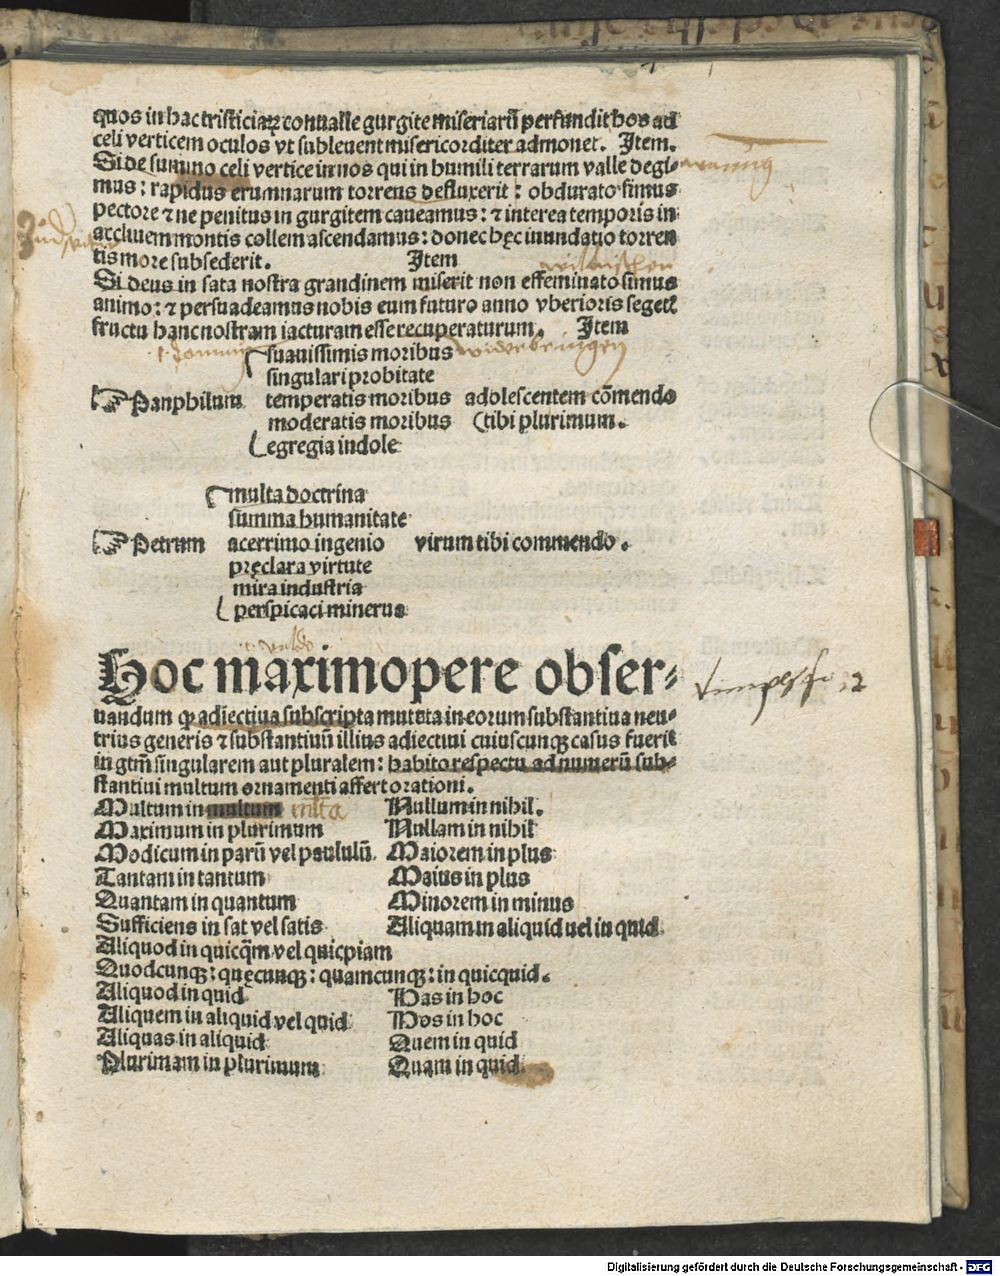 quos in hac tristiciaꝝ conualle gurgite miseriarū perfundit hos ad
celi verticem oculos vt subleuent misericorditer admonet. Item.
Si de summo celi vertice in nos qui in humili terrarum valle degi⸗
mus: rapidus erumnarum torrens defluxerit: obdurato simus
pectore ⁊ ne penitus in gurgitem caueamus: ⁊ interea temporis in
accliuem montis collem ascendamus: donec hęc inundatio torren
tis more subsederit. Item
Si deus in sata nostra grandinem miserit non effeminato simus
animo: ⁊ persuadeamus nobis eum futuro anno vberioris seget̄
fructu hanc nostram iacturam esse recuperaturum. Item
widerbringen
suauissimis moribus
singulari probitate
☞ Panphilum temperatis moribus adolescentem cōmendo
moderatis moribus (tibi plurimum.
egregia indole
multa doctrina
summa humanitate
☞ Petrum acerrimo ingenio virum tibi commendo.
pręclara virtute
mira industria
perspicaci minerua
.i. valde
Hoc maximopere obser⸗
uandum ꝙ adiectiua subscripta mutata in eorum substantiua neu⸗
trius generis ⁊ substantiuū illius adiectiui cuiuscunqꝫ casus fuerit
in gtm̄ singularem aut pluralem: habito respectu ad numerū sub⸗
stantiui multum ornamenti affert orationi.
Multum in multum mlta
Maximum in plurimum
Modicum in parū vel paululū.
Tantam in tantum
Quantam in quantum
Sufficiens in sat vel satis
Nullum in nihil.
Nullam in nihil
Maiorem in plus
Maius in plus
Minorem in minus
Aliquam in aliquid uel in quid.
Aliquod in quicq̄m vel quicpiam
Quodcunqꝫ: quęcunqꝫ: quamcunqꝫ: in quicquid.
Aliquod in quid
Aliquem in aliquid vel quid
Aliquas in aliquid
Plurimam in plurimum
Has in hoc
Hos in hoc
Quem in quid
Quam in quid
Digitalisierung gefördert durch die Deutsche Forschungsgemeinschaft - DFG